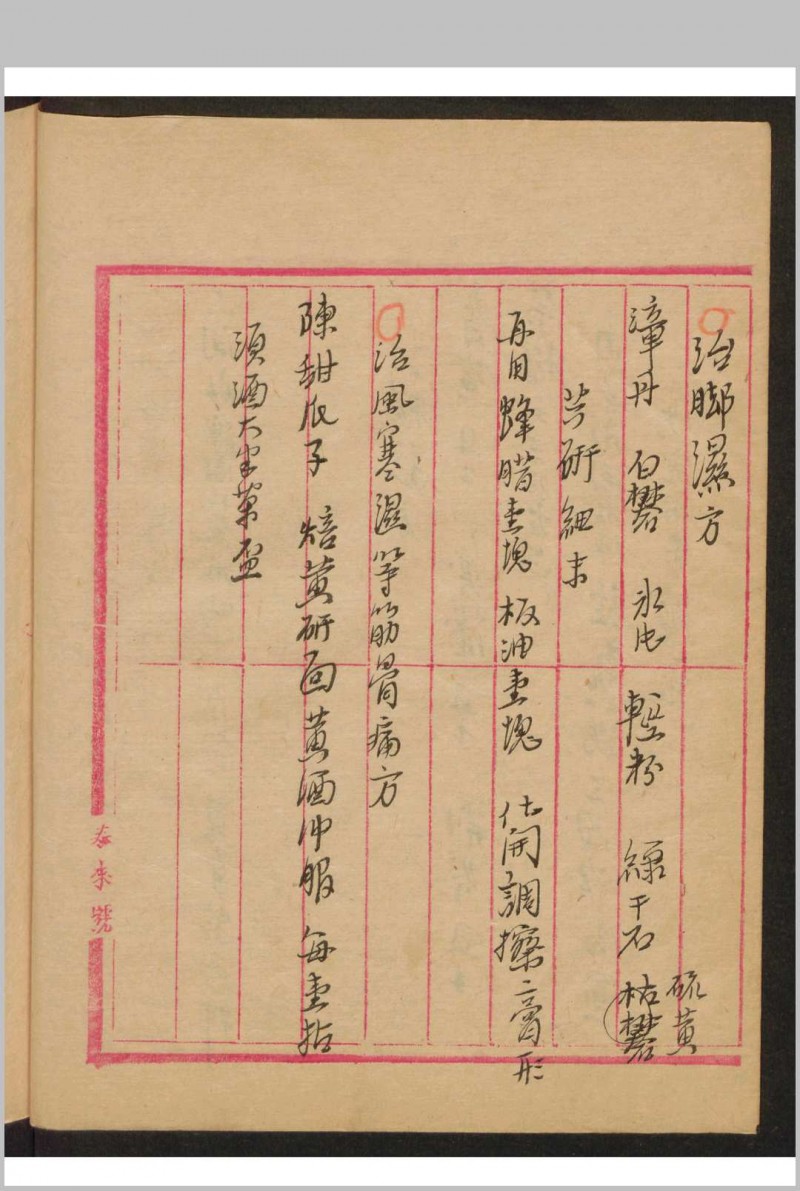 治脚濕方
漳丹 白礬 氷片 輕粉 綠干石 枯礬
硫黃
共研細末
再用蜂腊壹塊 板油壹塊 化開調擦二膏形
治風寒濕等筋骨痛方
陳甜瓜子 焙黃研面 黃酒冲服 每壹㧬
須酒大半茶盃
泰來號